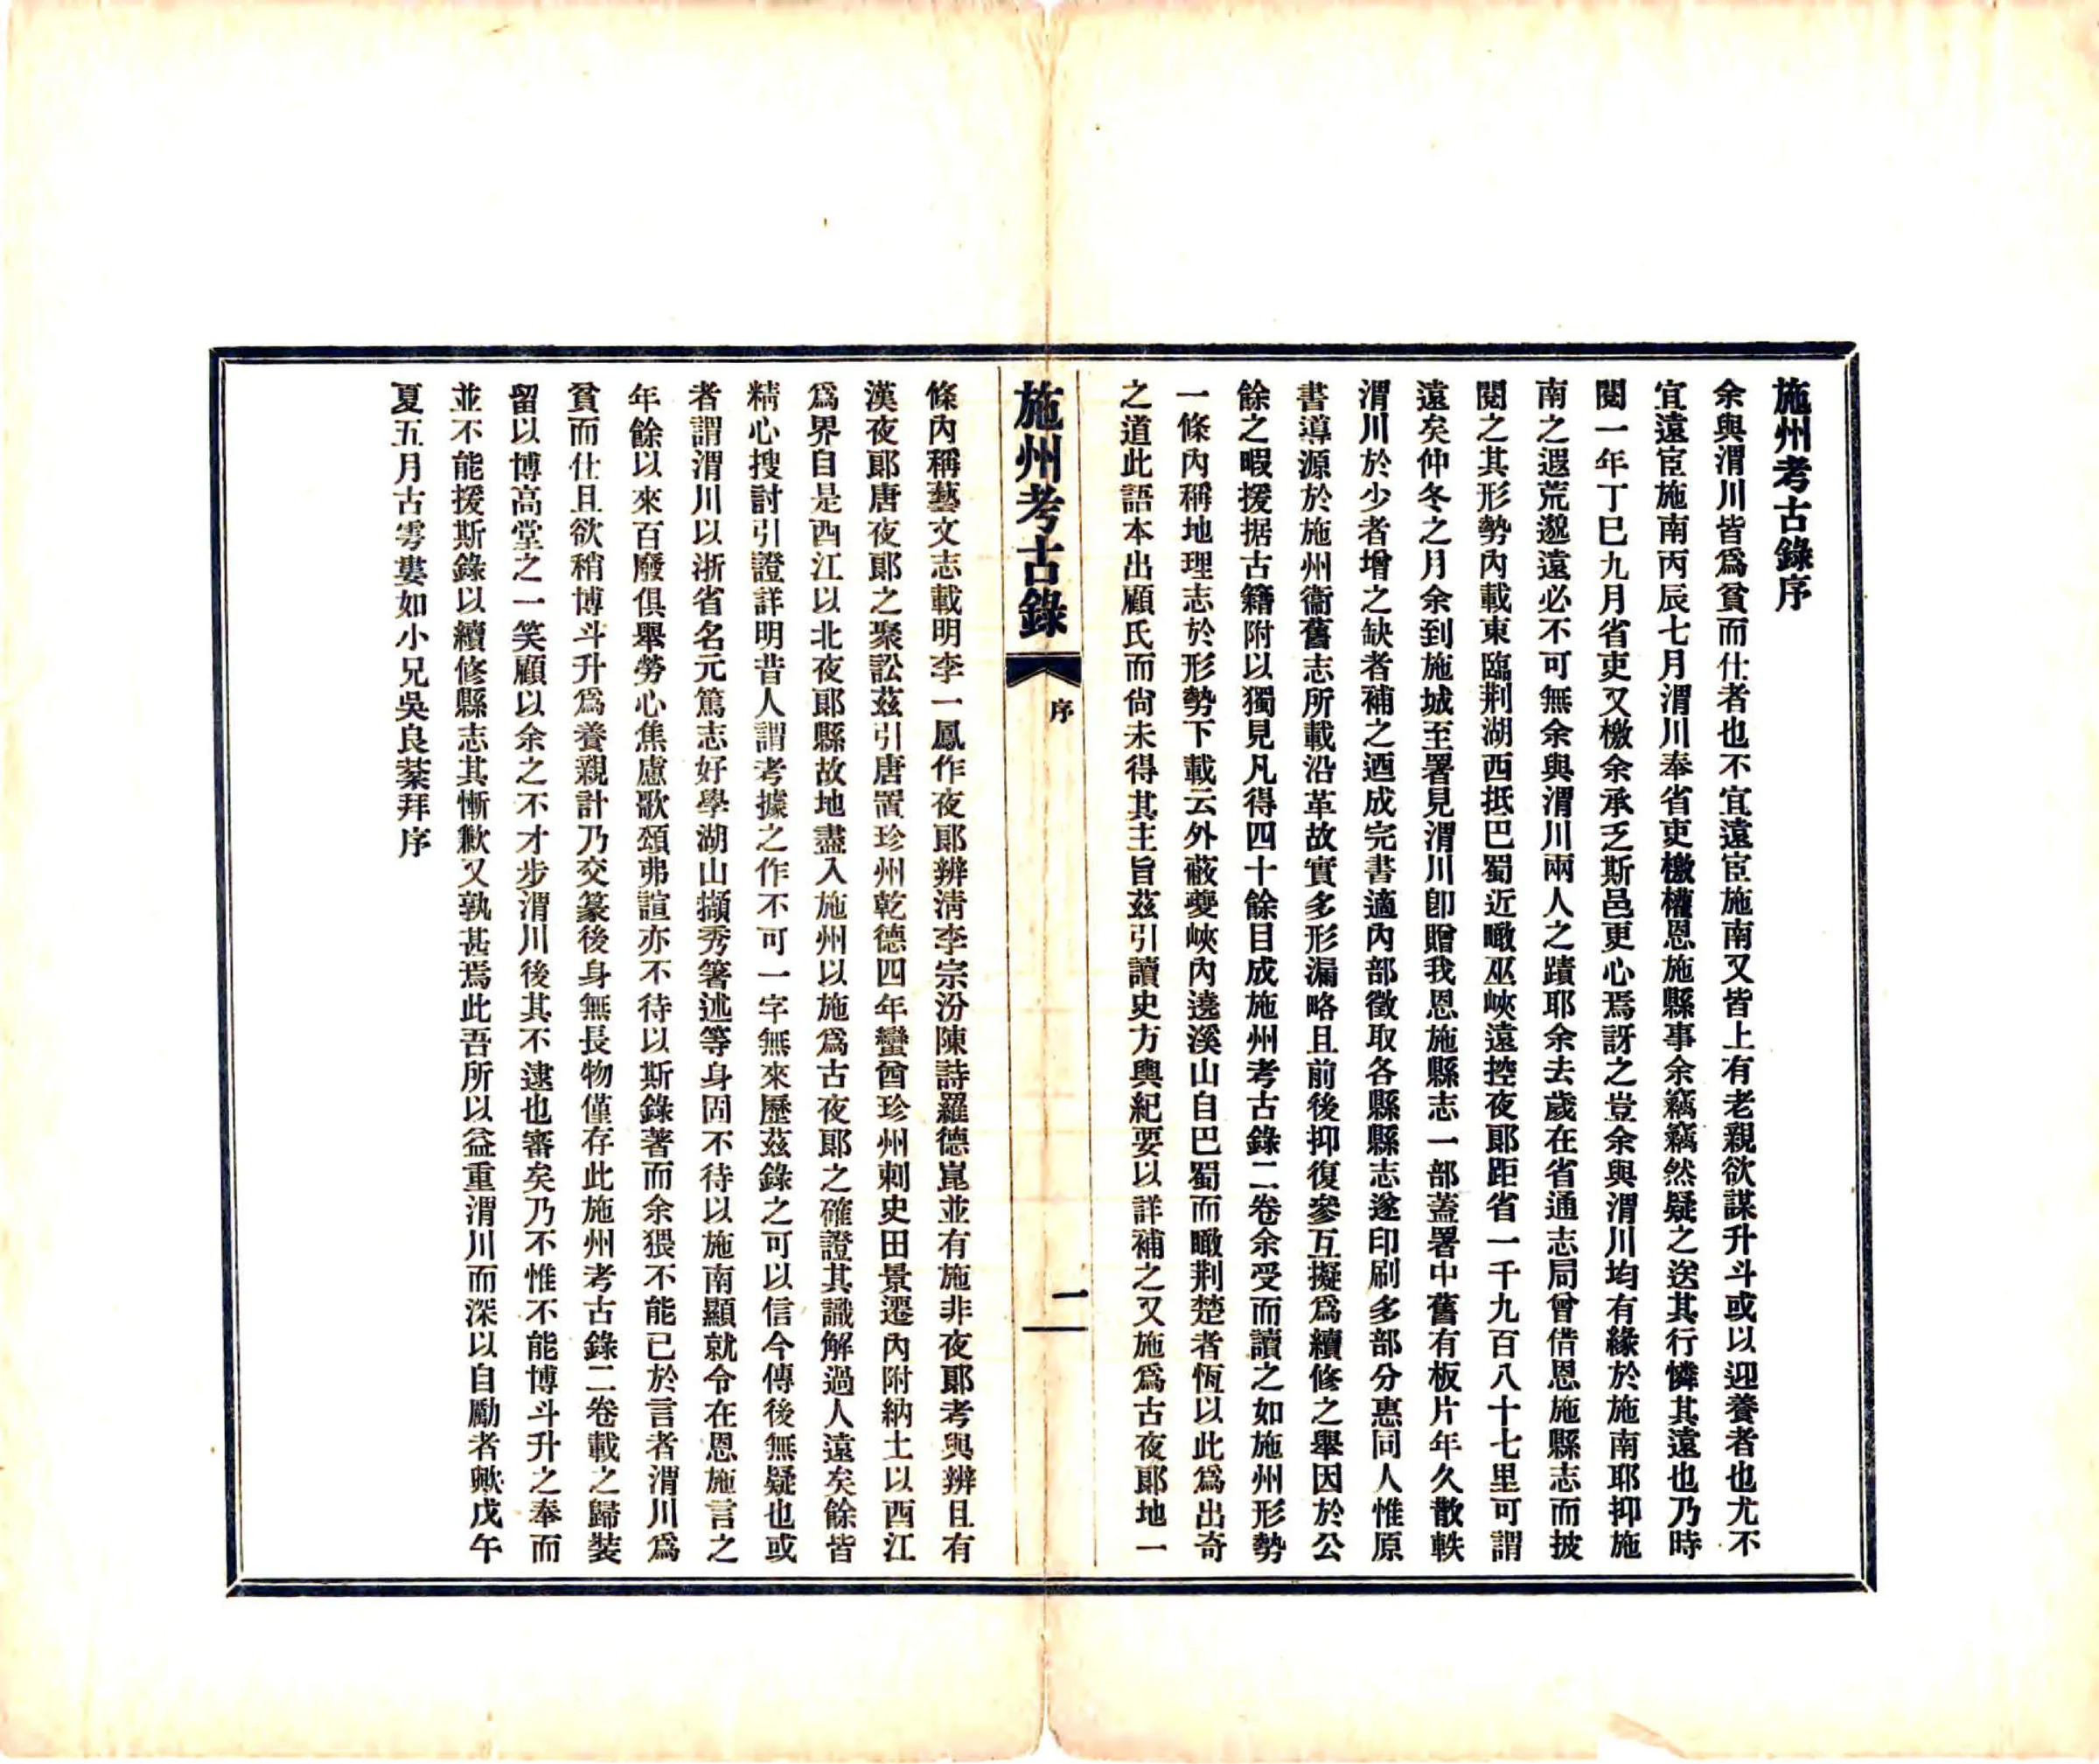 施州考古錄序
余與渭川皆爲貧而仕者也不宜遠宦施南又皆上有老親欲謀升斗或以迎養者也尤不
宜遠宦施南丙辰七月渭川奉省吏檄權恩施縣事余竊竊然疑之送其行憐其遠也乃時
閱一年丁巳九月省吏又檄余承乏斯邑更心焉訝之豈余與渭川均有緣於施南耶抑施
南之遐荒邈遠必不可無余與渭川兩人之蹟耶余去歲在省通志局曾借恩施縣志而披
閱之其形勢內載東臨荆湖西抵巴蜀近瞰巫峽遠控夜郞距省一千九百八十七里可謂
遠矣仲冬之月余到施城至署見渭川卽贈我恩施縣志一部蓋署中舊有板片年久散軼
渭川於少者增之缺者補之迺成完書適內部徵取各縣縣志遂印刷多部分惠同人惟原
書導源於施州衞舊志所載沿革故實多形漏略且前後抑復參互擬爲續修之舉因於公
餘之暇援据古籍附以獨見凡得四十餘目成施州考古錄二卷余受而讀之如施州形勢
一條內稱地理志於形勢下載云外蔽夔峽內遶溪山自巴蜀而瞰荆楚者恆以此爲出奇
之道此語本出顧氏而尙未得其主旨茲引讀史方輿紀要以詳補之又施爲古夜郞地一
施州考古錄
序
一
條內稱藝文志載明李一鳳作夜郞辨淸李宗汾陳詩羅德崑並有施非夜郞考與辨且有
漢夜郞唐夜郞之聚訟茲引唐置珍州乾德四年蠻酋珍州刺史田景遷內附納土以酉江
爲界自是酉江以北夜郞縣故地盡入施州以施爲古夜郞之確證其識解過人遠矣餘皆
精心搜討引證詳明昔人謂考據之作不可一字無來歷茲錄之可以信今傳後無疑也或
者謂渭川以浙省名元篤志好學湖山擷秀箸述等身固不待以施南顯就令在恩施言之
年餘以來百廢俱舉勞心焦慮歌頌弗諠亦不待以斯錄著而余猥不能已於言者渭川爲
貧而仕且欲稍博斗升爲養親計乃交篆後身無長物僅存此施州考古錄二卷載之歸裝
留以博高堂之一笑顧以余之不才步渭川後其不逮也審矣乃不惟不能博斗升之奉而
並不能援斯錄以續修縣志其慚歉又孰甚焉此吾所以益重渭川而深以自勵者歟戊午
夏五月古雩婁如小兄吳良棻拜序